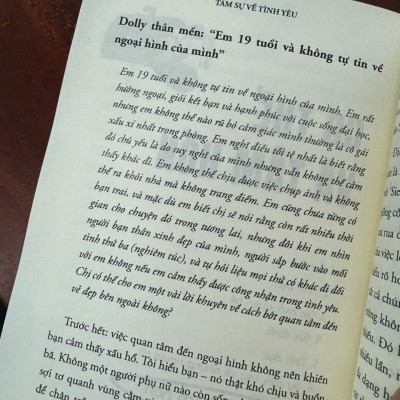 TÂM SỰ VỀ TÌNH YÊU
Dolly thân mến: “Em 19 tuổi và không tự tin về
ngoại hình của mình”
Em 19 tuổi và không tự tin về ngoại hình của mình. Em rất
hướng ngoại, giỏi kết bạn và hạnh phúc với cuộc sống đại học,
nhưng em không thể nào rũ bỏ cảm giác mình thường là cô gái
xấu xí nhất trong phòng. Em nghĩ điều tồi tệ nhất là biết rằng
đó chủ yếu là do suy nghĩ của mình nhưng vẫn không thể cảm
thấy khác đi. Em không thể chịu được việc chụp ảnh và không
thể ra khỏi nhà mà không trang điểm. Em cũng chưa từng có
bạn trai, và mặc dù em biết chị sẽ nói rằng còn rất nhiều thời
gian cho chuyện đó trong tương lai, nhưng đôi khi em nhìn
người bạn thân xinh đẹp của mình, người sắp bước vào mối
tình thứ ba (nghiêm túc), và tự hỏi liệu mọi thứ có khác đi đối
với em không nếu em cảm thấy được công nhận trong tình yêu.
Chị có thể cho em một vài lời khuyên về cách bớt quan tâm đến
vẻ đẹp bên ngoài không?
Trước hết: việc quan tâm đến ngoại hình không nên khiến
bạn cảm thấy xấu hổ. Tôi hiểu bạn – nó thật khó chịu và buồn
bã. Không một người phụ nữ nào còn sống
sợi tơ quanh vùng cằm
để chân trần